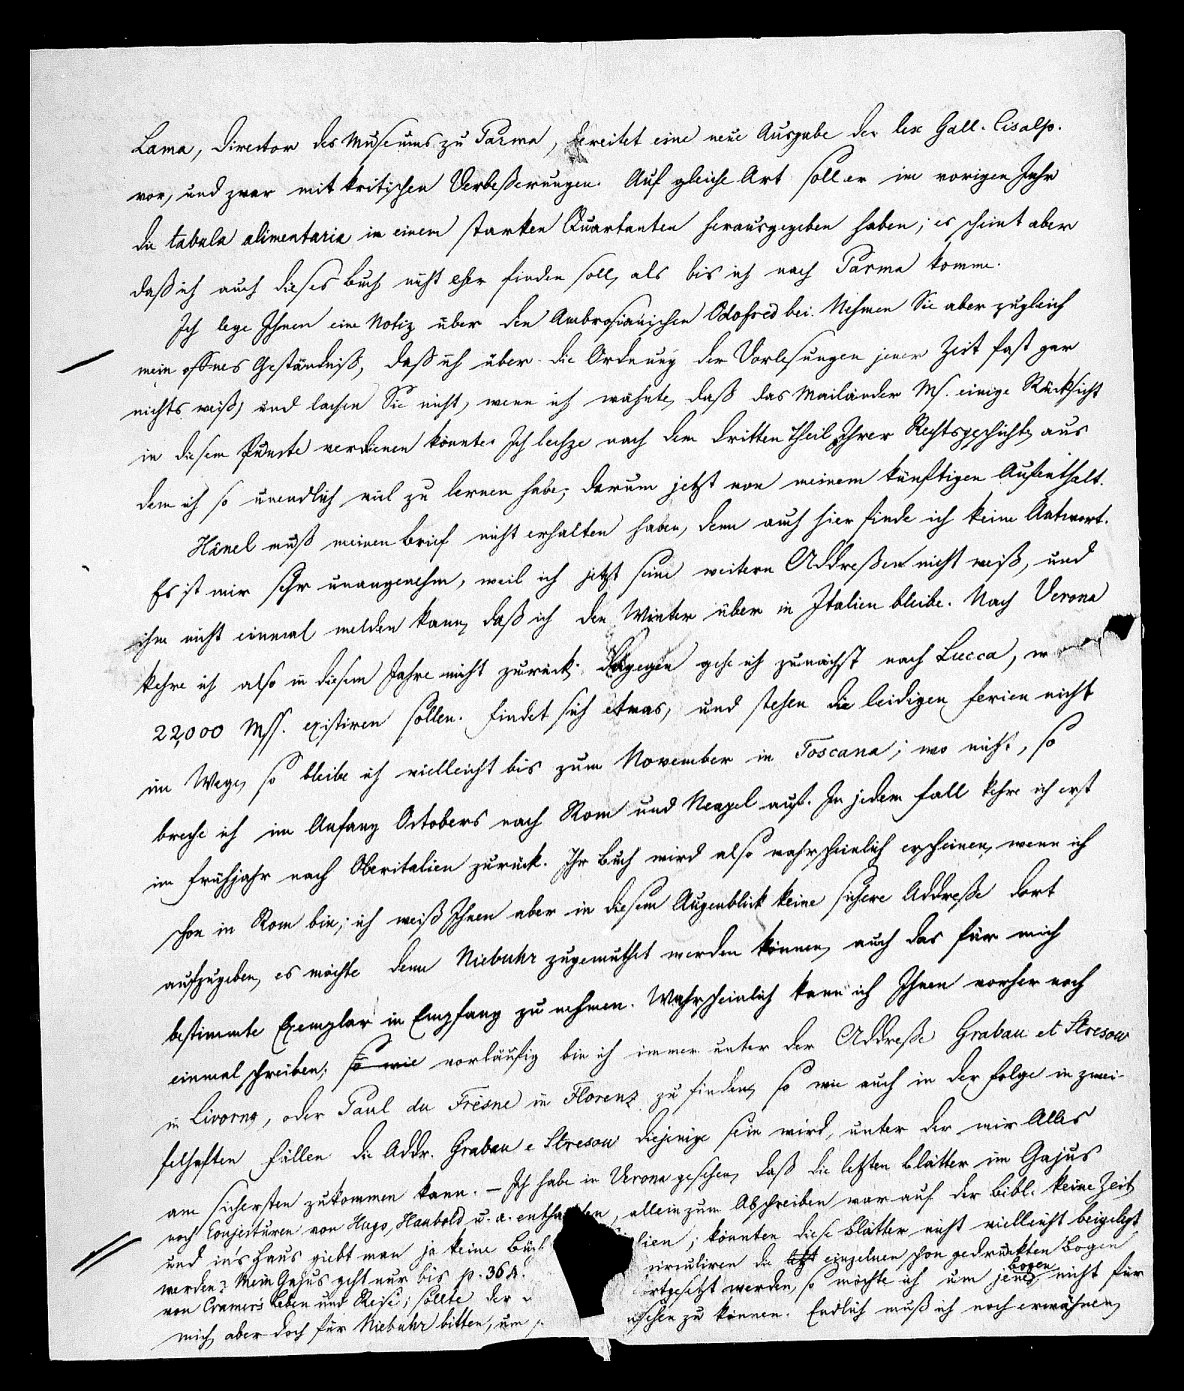 Lama, Director des Museums zu Parma, bereitet eine neue Ausgabe der lex Gall. Cisalp.
vor, und zwar mit kritischen Verbeßerungen. Auf gleiche Art soll er im vorigen Jahr
die tabula alimentaria in einem starken Quartanten herausgegeben haben; es scheint aber
daß ich auch dieses Buch nicht eher finden soll, als bis ich nach Parma komme.
Ich lege Ihnen eine Notiz über den Ambrosianischen Odofred bei. Nehmen Sie aber zugleich
mein offnes Geständniß, daß ich über die Ordnung der Vorlesungen jener Zeit fast gar
nichts weiß, und lachen Sie nicht, wenn ich wähnte, daß das Mailänder Ms. einige Rücksicht
in diesem Punkte verdienen könnte. Ich lechze nach dem dritten Theil Ihrer Rechtsgeschichte, aus
dem ich so unendlich viel zu lernen habe; darum jetzt von meinem künftigen Aufenthalt.
Hänel muß meinen Brief nicht erhalten haben, denn auch hier finde ich keine Antwort.
Es ist mir sehr unangenehm, weil ich jetzt seine weitern Addreßen nicht weiß, und
ihm nicht einmal melden kann, daß ich den Winter über in Italien bleibe. Nach Verona
kehre ich also in diesem Jahre nicht zurück; dagegen gehe ich zunächst nach Lucca,
22,000 Mss. existiren sollen. Findet sich etwas, und stehen die leidigen Ferien nicht
im Wege, so bleibe ich vielleicht bis zum November in Toscana; wo nicht, so
breche ich im Anfang Octobers nach Rom und Neapel auf. In jedem Fall kehre ich erst
im Frühjahr nach Oberitalien zurück. Ihr Buch wird also wahrscheinlich erscheinen, wenn ich
schon in Rom bin; ich weiß Ihnen aber in diesem Augenblick keine sichere Addreße dort
aufzugeben, es möchte denn Niebuhr zugemuthet werden können, auch das für mich
bestimmte Exemplar in Empfang zu nehmen. Wahrscheinlich kann ich Ihnen vorher noch
einmal schreiben; so wie vorläufig bin ich immer unter der Addreße Grabau et Stresow
in Livorno, oder Paul du Fresne in Florenz zu finden, so wie auch in der Folge in zwei-
felhaften Fällen die Addr. Grabau e Stresow diejenige sein wird, unter der mir Alles
am sichersten zukommen kann. – Ich habe in Verona gesehen, daß die letzten Blätter im Gajus
noch Conjecturen von Hugo, Haubold u. a. enthalten, allein zum Abschreiben war auf der Bibl. keine Zeit,
und ins Haus giebt man ja keine lien; könnten diese Blätter nicht vielleicht beigelegt
werden? Mein Gajus geht nur bis p. 364. die einzelnen schon gedruckten Bogen
von Cramers Leben und Reise; sollte der ortgesetzt werden, so möchte ich um jene Bogen nicht für
mich, aber doch für Niebuhr bitten, um zu können. Endlich muß ich noch erwähnen,